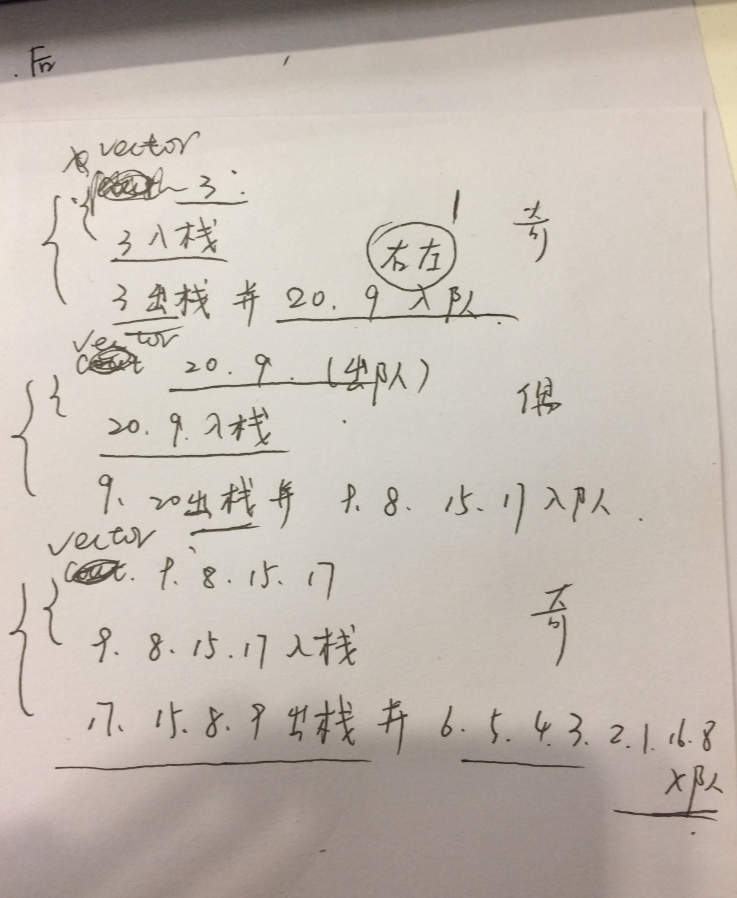 后
vector
3
3入栈
右左
1
奇
3出栈并20.9入队.
vector
20.9.(出队)
偶
20.9.入栈
9.20出栈并9.8.15.17入队.
vector
9.8.15.17
奇
9.8.15.17入栈
17.15.8.9出栈并6.5.4.3.2.1.16.8
入队